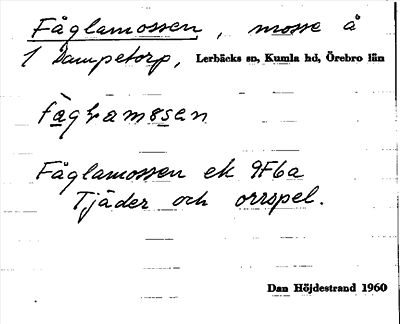 Fåglamossen, mosse å
1 Dampetorp, Lerbäcks sn, Kumla hd, Örebro län
Fåglamossen ek 9F6a
Tjäder och orrspel.
Dan Höjdestrand 1960